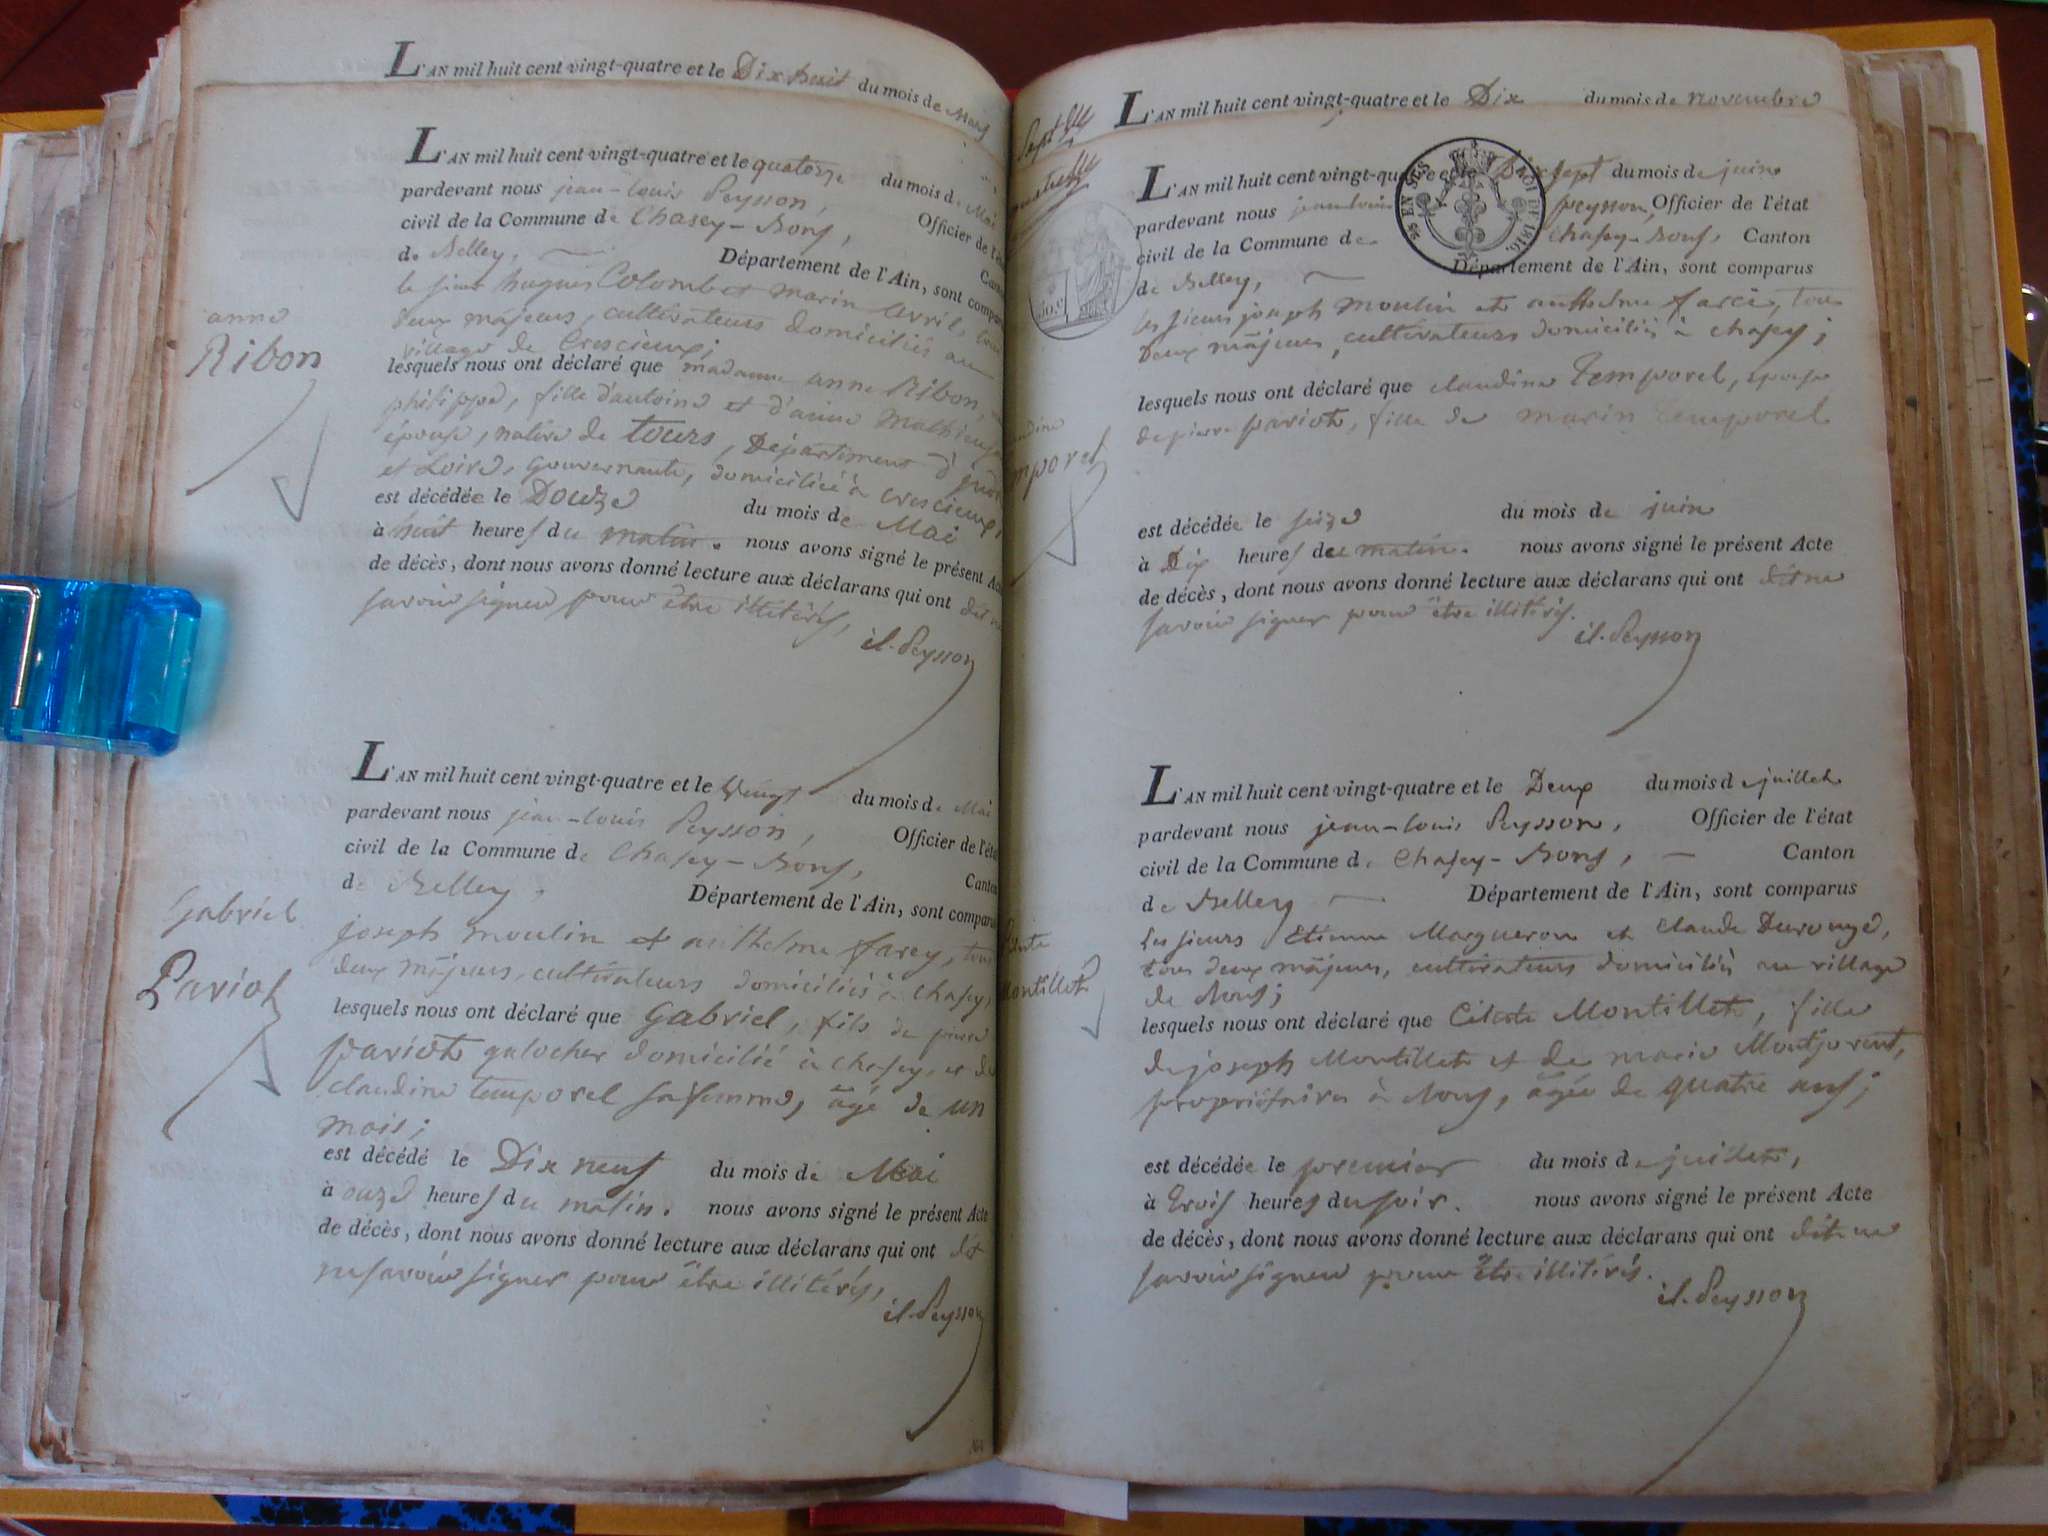 L'AN mil huit cent vingt-quatre et le Dix huit du mois de Mars
L'AN mil huit cent vingt-quatre et le quatorze du mois de Mai
pardevant nous jean-louis Peysson, Officier de l'éta
civil de la Commune de Chasey-Bons, Canto
de Belley. Département de l'Ain, sont compar
le sieur hugues Colomb et marin avril, tous
deux mâjeurs, cultivateurs domiciliés au
village de Crescieux;
anne
Ribon
lesquels nous ont déclaré que madame anne Ribon,
philippe, fille d'antoine et d'anne Mathieu
épouse, native de tours, Département d'
et Loire, Gouvernante, domiciliée à Crescieux,
est décédée le Douze du mois de Mai
à huit heures du matin. nous avons signé le présent Ac
de décès, dont nous avons donné lecture aux déclarans qui ont dit ne
savoir signer pour être illitérés,
jl. Peysson
L'AN mil huit cent vingt-quatre et le Vingt du mois de Mai
pardevant nous jean-louis Peysson, Officier de l'éta
civil de la Commune de Chasey-Bons, Canton
de Belley. Département de l'Ain, sont comparu
joseph moulin et anthelme farcy, tous
deux mâjeurs, cultivateurs domiciliés à Chasey,
Gabriel
Pariot
lesquels nous ont déclaré que Gabriel, fils de pierre
pariot galocher domicilié à Chasey, et de
claudine temporel sa femme, âgé de un
mois;
est décédé le Dix neuf du mois de Mai
à onze heures du matin. nous avons signé le présent Acte
de décès, dont nous avons donné lecture aux déclarans qui ont dit
ne savoir signer pour être illitérés,
jl. Peysson
L'AN mil huit cent vingt-quatre et le Dix du mois de novembre
L'AN mil huit cent vingt-quatre et le Dix sept du mois de juin
pardevant nous jean louis peysson, Officier de l'état
civil de la Commune de Chasey-Bons, Canton
de Belley, Département de l'Ain, sont comparus
les sieurs joseph moulin et anthelme farci, tous
deux mâjeurs, cultivateurs domiciliés à chasey;
lesquels nous ont déclaré que claudine Temporel, épouse
de pierre pariot, fille de marin temporel
mporel
est décédée le seize du mois de juin
à Dix heures du matin. nous avons signé le présent Acte
de décès, dont nous avons donné lecture aux déclarans qui ont dit ne
savoir signer pour être illitérés.
jl. Peysson
L'AN mil huit cent vingt-quatre et le Deux du mois de juillet
pardevant nous jean-louis Peysson, Officier de l'état
civil de la Commune de Chasey-Bons, Canton
de Belley Département de l'Ain, sont comparus
les sieurs Etienne Margueron et Claude Durouge,
tous deux mâjeurs, cultivateurs domiciliés au village
de Bons;
ontillet
lesquels nous ont déclaré que Céleste Montillet, fille
de joseph Montillet et de marie Montjovent,
propriétaires à Bons, âgée de quatre ans;
est décédée le premier du mois de juillet,
à trois heures du soir. nous avons signé le présent Acte
de décès, dont nous avons donné lecture aux déclarans qui ont dit ne
savoir signer pour être illitérés.
jl. Peysson